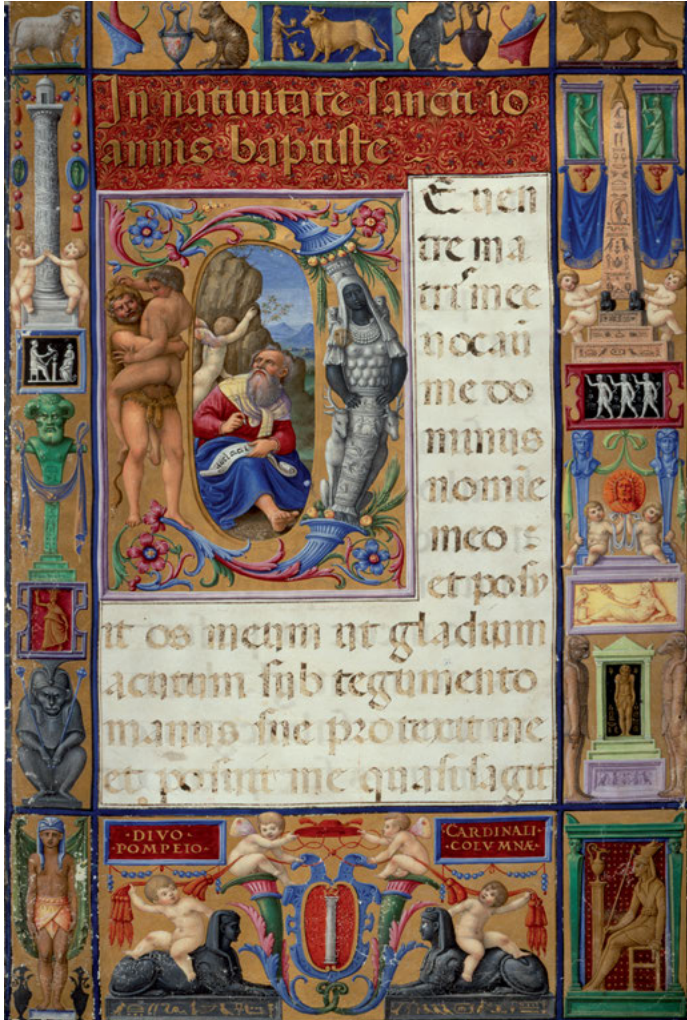 In natiuitate sancti io
annis baptiste ~
D E uen
tre ma
tris mee
me do
minus
nomīe
meo :
et posu
it os meum ut gladium
acutum sub tegumento
manus sue protexit me
et posuit me quasi sagit
·DIVO·
POMPEIO·
·CARDINALI·
·COLVMNÆ·